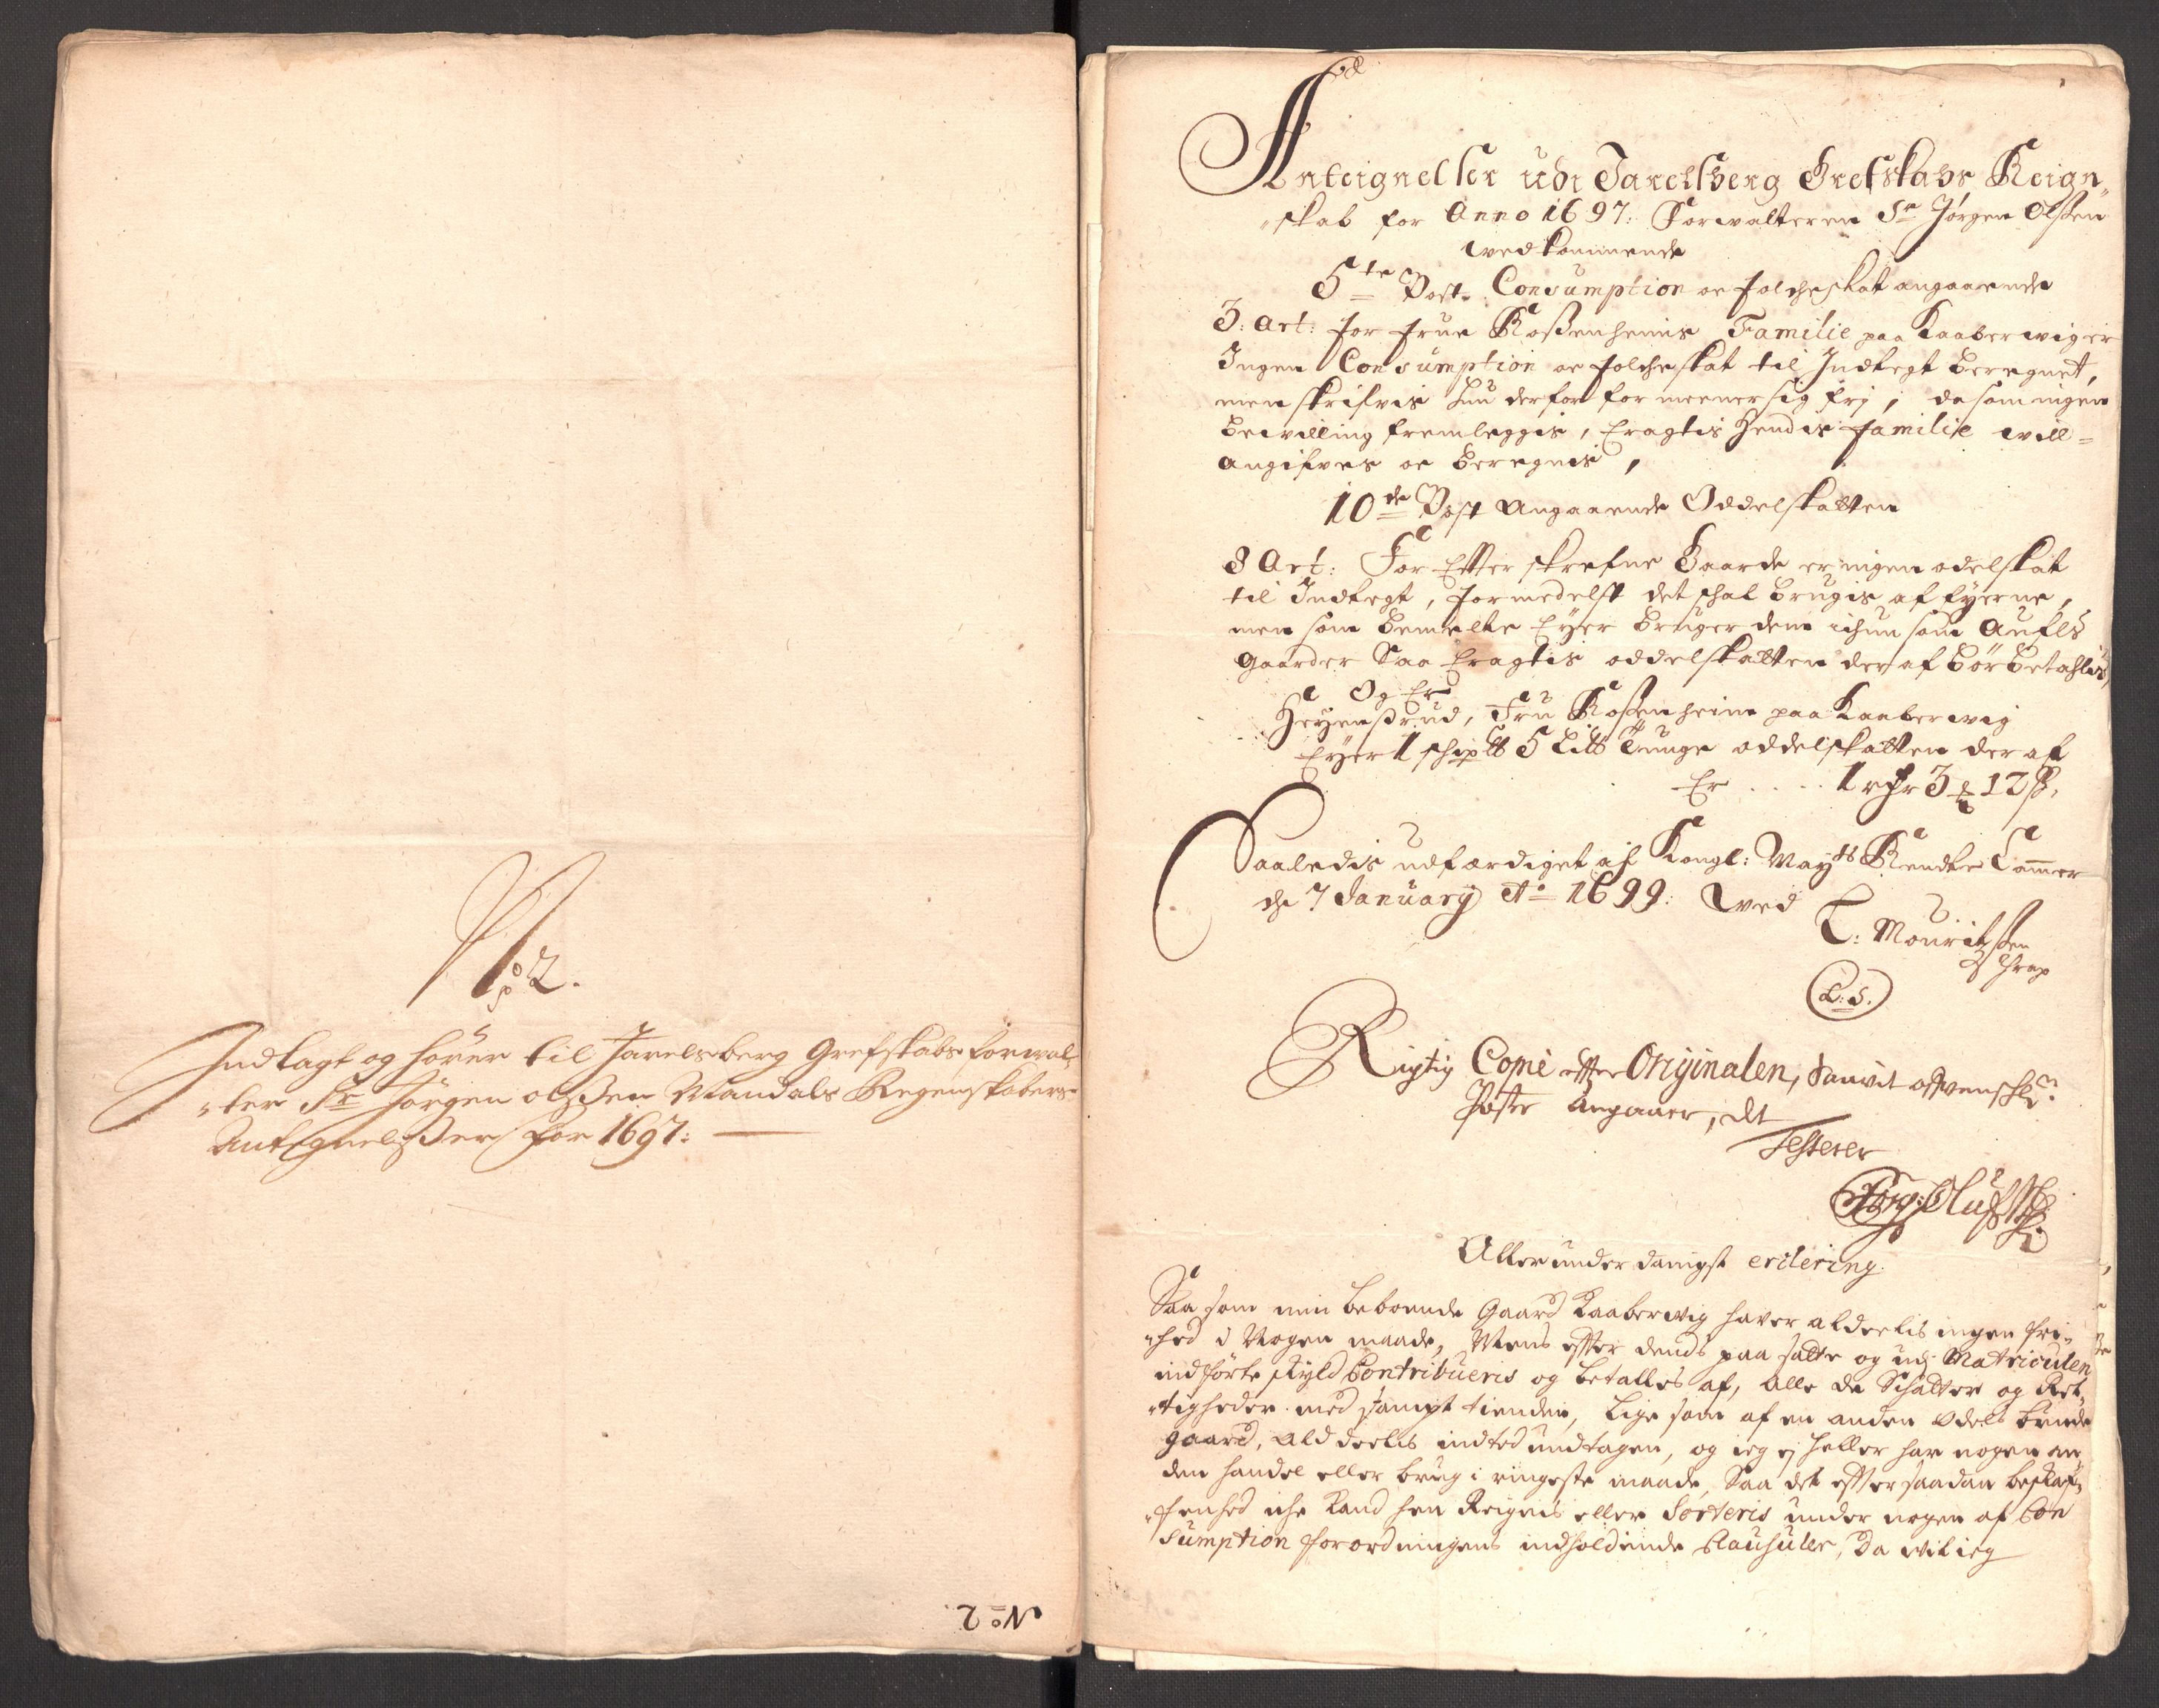 No 2.
Indlagt og hører til Jarelsberg Grefskabs forwal„
„ter Sr Jørgen olsßen Mandals Regenskabers
Antegnelsßer for 1697:
No 2
Anteignelser udi Jarelsberg Grefskabs Reign„
„skab for Anno 1697: Forwalteren Sr Jørgen Olßen
wedkommende
5te Post. Consumption oc folcheskat angaaende
3: Art: for frue Roßenheims Familie paa Kaaberwig er
Ingen Consumption oc folcheskat til Indtegt beregnet,
men skrifvis hun derfor formeener sig frj, da som ingen
bevilling fremleggis, Eragtis hendis familie will=
angifves oc beregnis,
10de Post Angaaende Oddelskatten
8 Art: For Efterskrefne Gaarde er ingen odelskat
til Indtegt, formedelst det schal brugis af Eyerne,
men som bemelte Eyer bruger dem ichun som Aufls
gaarder Saa Eragtis oddelskatten deraf bør betahlis,
Og Er
Heyensrud, Fru Roßenheim paa Kaaberwig
Eyer 1 schip℔ 5 Lit℔ Tunge oddelskatten deraf
Er . . . . 1 rdr 3 ꝑ 12 ß,
Saaledis udfærdiget af Kongl: Mayts Rendte Cammer
d: 7 January Ao 1699: wed
C: Mouritzßen
L: S.
Rigtig Copie efter Originalen, saavit ofvenschl:
Poster Angaaer, dt
Testerer
Jørg: Oluf
Allerunderdanigst erclering.
Saa som min beboende Gaard Kaaberwig haver aldeelis ingen fri„
„hed i Nogen maade, Mens efter dends paasatte og udj Matriculen
indførte skyld Contribueris og betalles af, alle de Schatter og Ret„
„tigheder med sampt tienden, Lige som af en anden Odels bunde
gaard, alddeelis indted undtagen, og ieg ej heller har nogen an„
den handel eller brug i ringeste maade, Saa det efter saadan beskaf„
„fenhed iche kand hen Reignis eller Sorteris under nogen af Con
sumption forordningens indholdende Clausuler, Da wil ieg